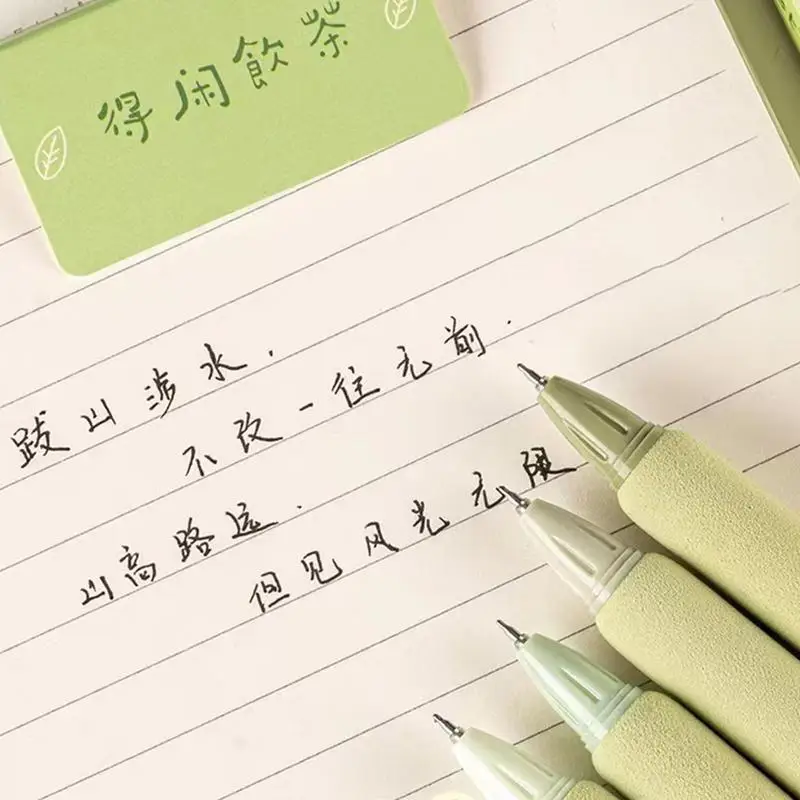 得闲飲茶
跋山涉水.
不改一往无前.
山高路远.
但见风光无限